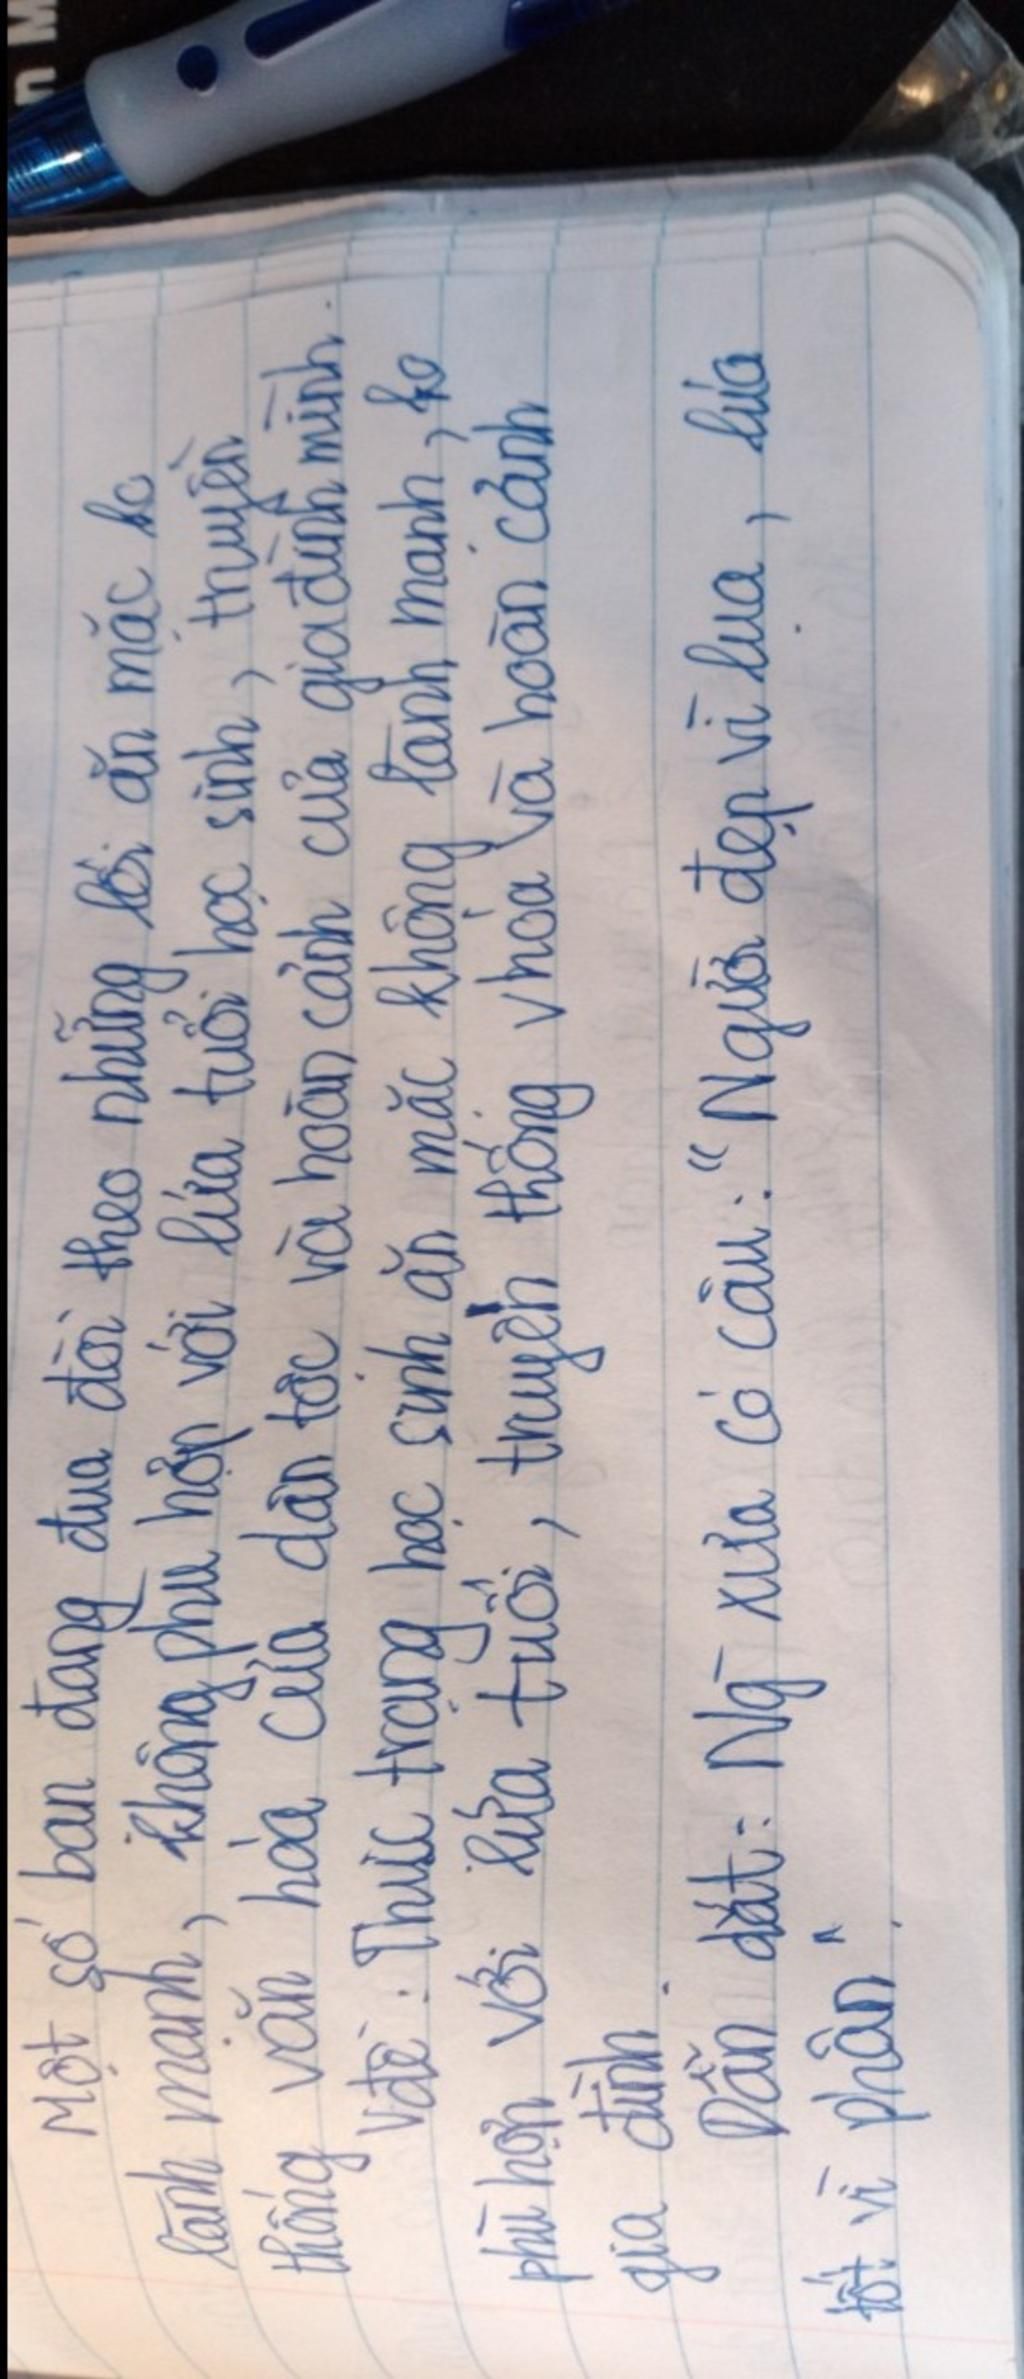 Một số bạn đang đua đòi theo những lối ăn mặc ko
lành mạnh, không phù hợp với lứa tuổi học sinh, truyền
thống văn hóa của dân tộc và hoàn cảnh của gia đình mình.
Vđề: Thực trạng học sinh ăn mặc không lành mạnh, ko
phù hợp với lứa tuổi, truyền thống vhóa và hoàn cảnh
gia đình.
Dẫn dắt: Ng̅ xưa có câu: "Người đẹp vì lụa, lúa
tốt vì phân".